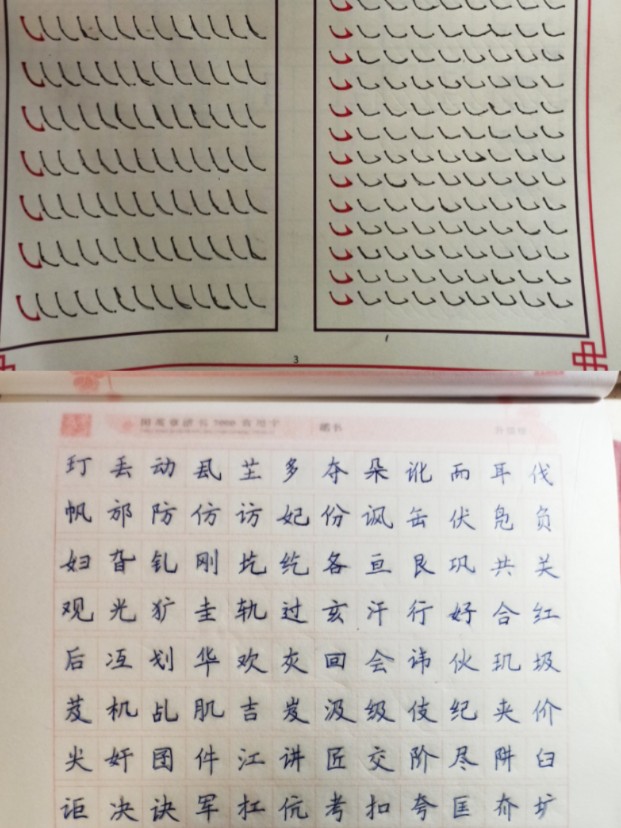 3
7000
玎 丢 动 厾 芏 多 夺 朵 讹 而 耳 伐
帆 邡 防 仿 访 妃 份 讽 缶 伏 凫 负
妇 旮 钆 刚 圪 纥 各 亘 艮 巩 共 关
观 光 犷 圭 轨 过 玄 汗 行 好 合 红
后 冱 划 华 欢 灰 回 会 讳 伙 玑 圾
芨 机 乩 肌 吉 岌 汲 级 伎 纪 夹 价
尖 奸 团 件 江 讲 匠 交 阶 尽 阱 臼
讵 决 诀 军 扛 伉 考 扣 夸 匡 夼 扩